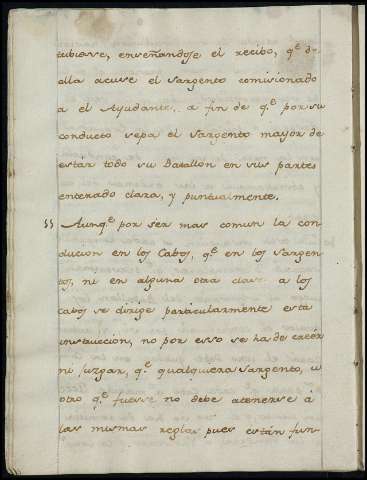 cibiese, enseñandose el recibo, q.e de
ella acuse el Sargento comisionado
a el Ayudante, a fin de q.e por su
conducto sepa el Sargento mayor de
estár todo su Batallon en sus partes
enterado clara, y puntualmente.
55 Aunq.e por ser mas comun la con-
ducion en los Cabos, q.e en los Sargen-
tos, ni en alguna otra clase a los
cabos se dirige particularmente esta
instruccion, no por esso se ha de creér
ni juzgar, q.e qualquiera Sargento, u
otro q.e fuesse no debe atenerse á
las mismas reglas pues están fun-